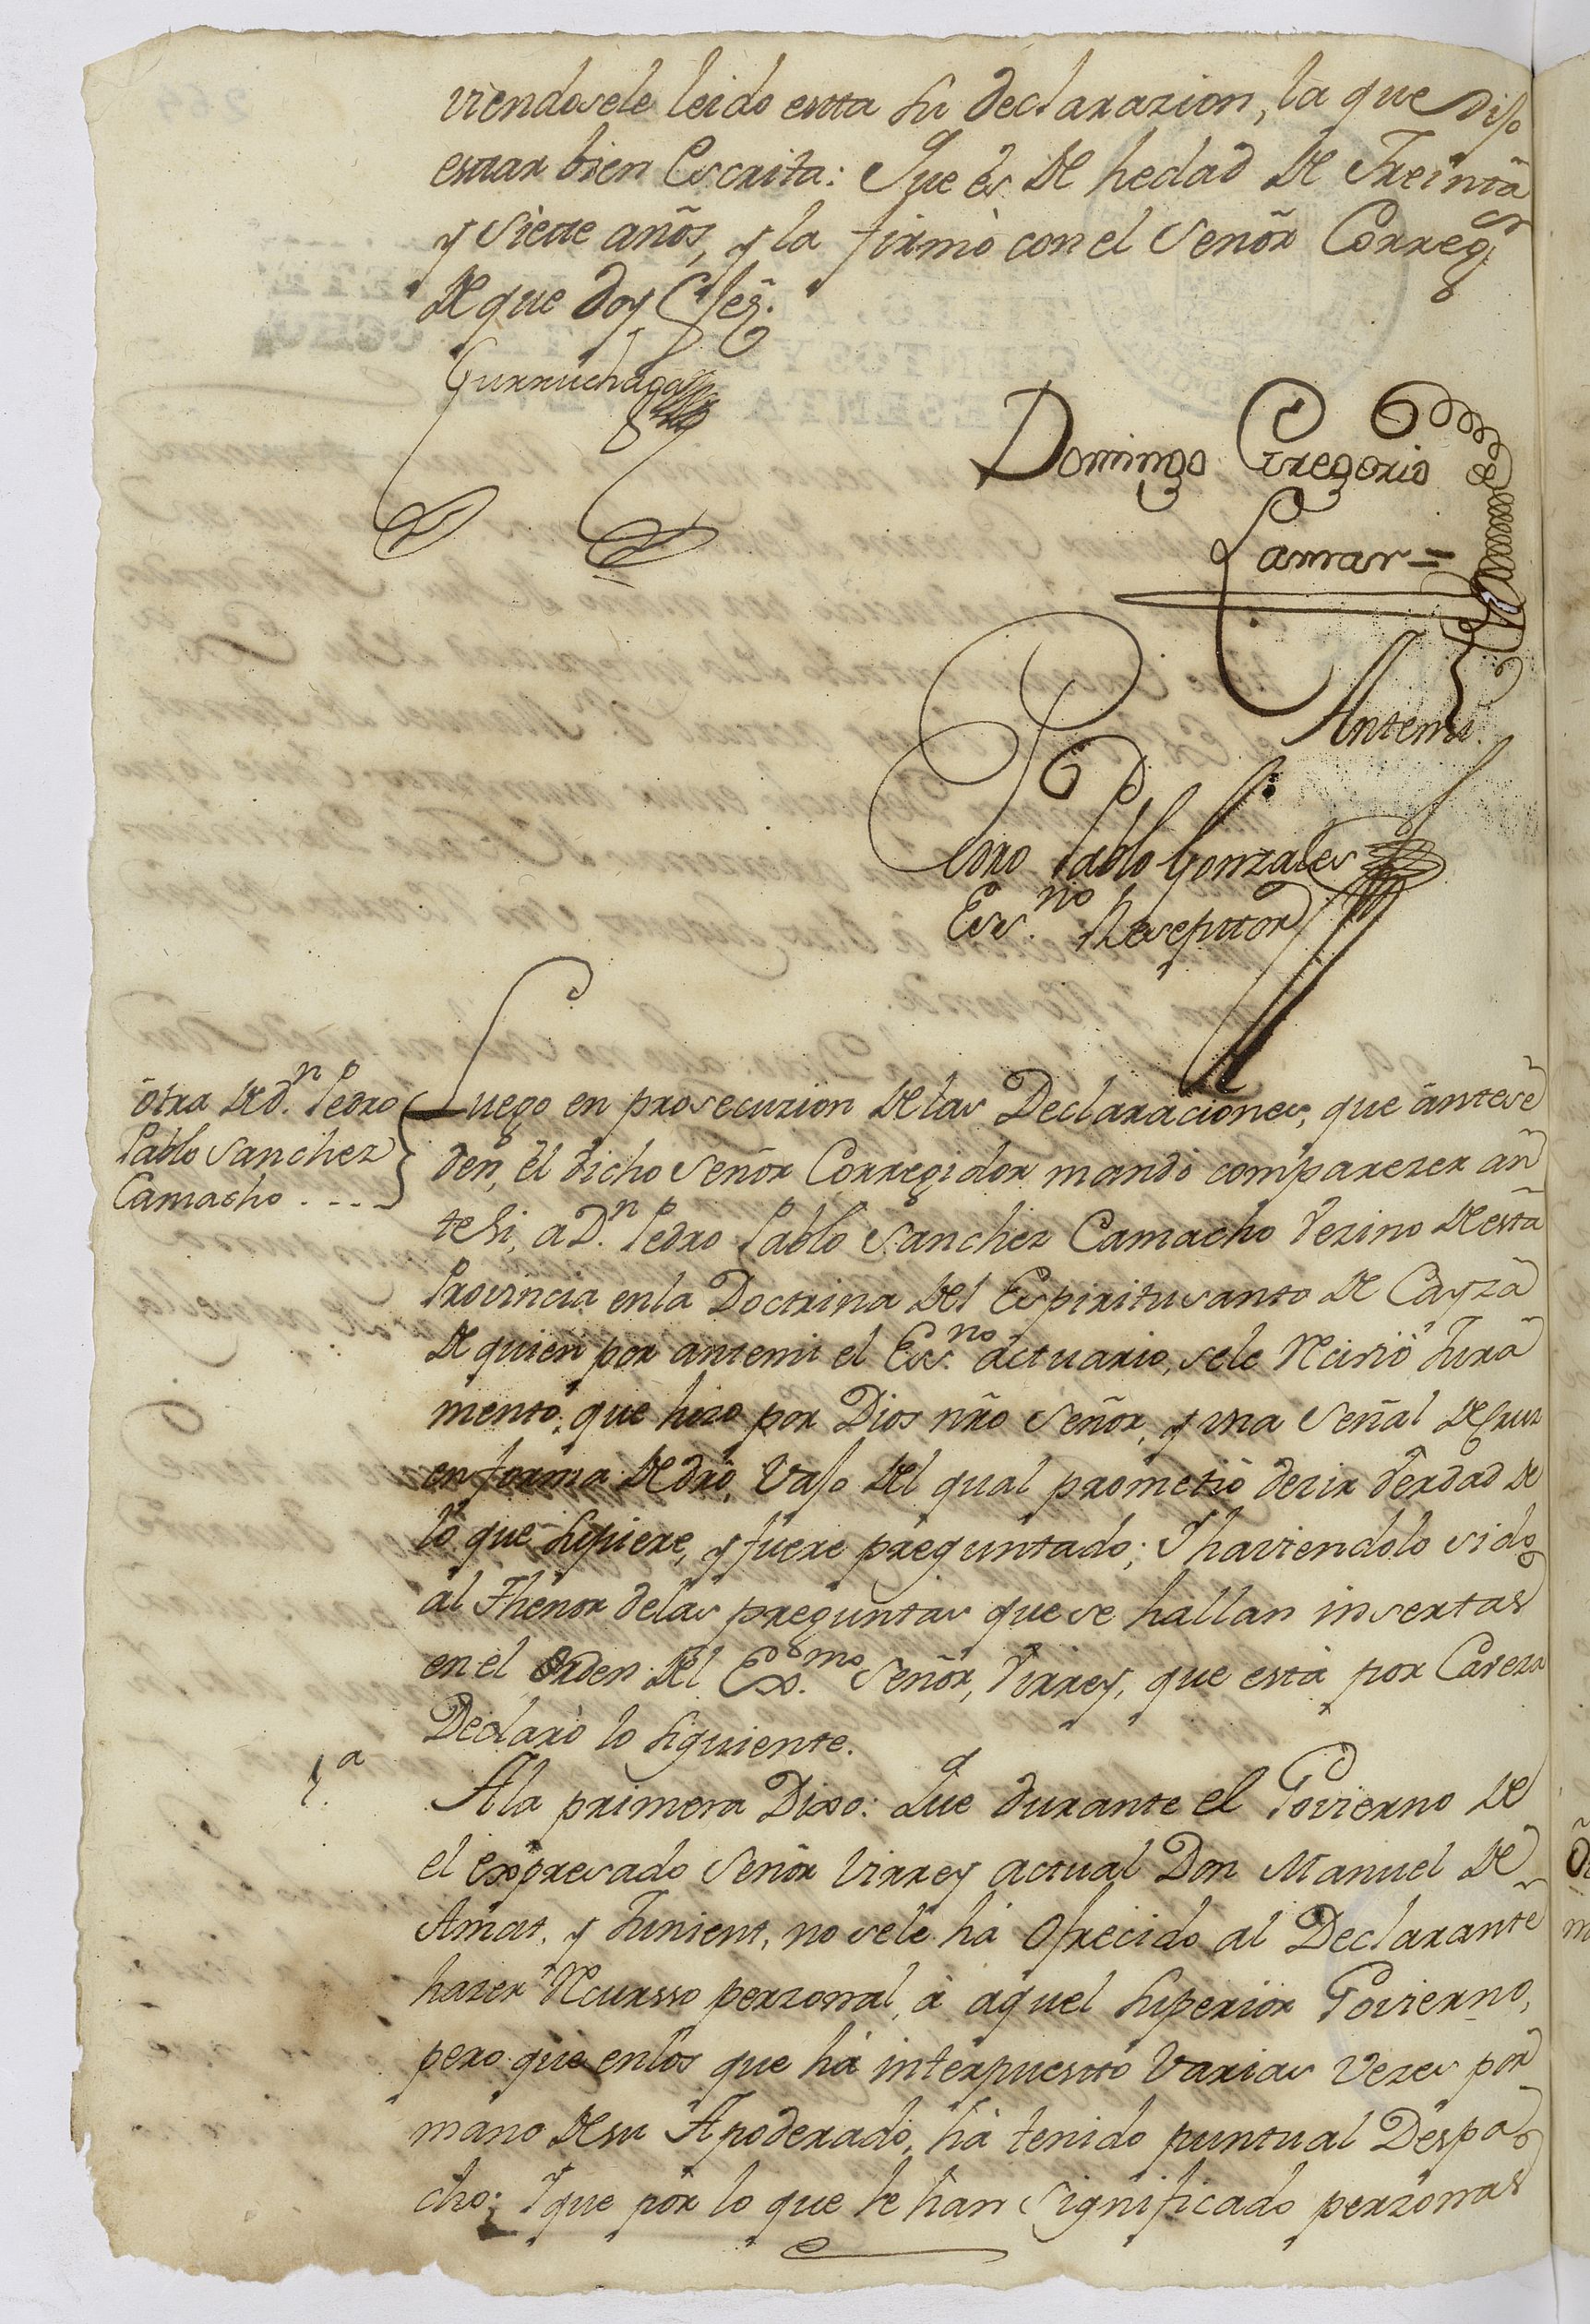 viendosele leido estta su declarazion, la que dijo
estar bien Escrita: Que és de hedad de Treinta
y siete años, y la firmó con el Señor Correg.or
de que doy Fee.
Gurruchaga
Domingo Gregorio
Lamar =
Antemi.
Pedro Pablo Gonzales
Ess.no Reseptor
otra de d.n Pedro
Pablo Sanchez
Camacho . - - -
Luego en prosecuzion de las Declaraciones, que ántese
den, él dicho Señor Corregidor mandó comparezer an
te si, a D.n Pedro Pablo Sanchez Camacho Vezino de esta
Provincia en la Doctrina del Espiritusanto de Cayza
de quien por antemi el Ess.no áctuario, sele Recivió Jura
mento, que hizo por Dios nro Señor, y una Señal de Cruz
en forma de dro, Vajo del qual prometió dezir Verdad de
lo que supiere, y fuere preguntado; Y haviendolo sido
al Thenor delas preguntas que se hallan insertas
en el Orden del Exx.mo Señor, Virrey, que está por Caveza
Declaró lo siguiente.
1.a
A la primera Dixo: Que durante el Govierno de
el expresado Señor Virrey actual Don Manuel de
Amat, y Junient, no sele há Ofrecido al Declarante
hazer Recursso perzonal, á aquel Superior Govierno,
pero que enlos que há interpuestto Varias Vezes por
mano de su Apoderado, há tenido puntual Despa
cho; Y que por lo que le hán significado perzonas